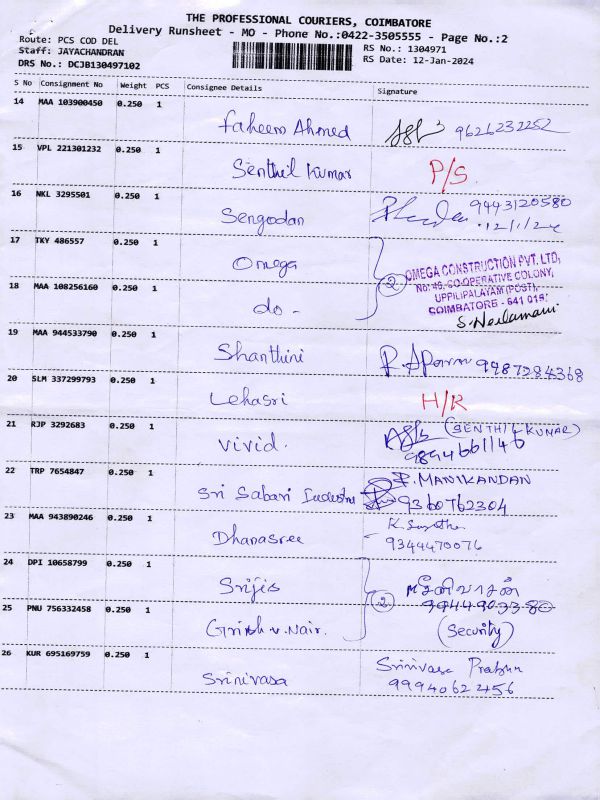 THE PROFESSIONAL COURIERS, COIMBATORE
Delivery Runsheet - MO - Phone No.:0422-3505555 - Page No.:2
Route: PCS COD DEL
RS No.: 1304971
Staff: JAYACHANDRAN
RS Date: 12-Jan-2024
DRS No.: DCJB130497102
S No Consignment No Weight PCS Consignee Details Signature
14 MAA 103900450 0.250 1
Faheem Ahmed 9626232252
15 VPL 221301232 0.250 1
Senthil Kumar P/S.
16 NKL 3295501 0.250 1
Sengodan 9443120580
12/1/24
17 TKY 486557 0.250 1
Omega 2
OMEGA CONSTRUCTION PVT. LTD,
No: 49, CO-OPERATIVE COLONY,
UPPILIPALAYAM (POST),
COIMBATORE - 641 015.
18 MAA 108256160 0.250 1
do -
S. Neelamani
19 MAA 944533790 0.250 1
Shanthini 9987284368
20 SLM 337299793 0.250 1
Lehasri H/R
21 RJP 3292683 0.250 1
Vivid. (SENTHIL KUMAR)
9894661146
22 TRP 7654847 0.250 1
Sri Sabari MANIKANDAN
9360762304
23 MAA 943890246 0.250 1
Dhanasree
9344470076
24 DPI 10658799 0.250 1
Srijis 2 சீனிவாசன்
25 PNU 756332458 0.250 1
Girish v. Nair. (Security)
26 KUR 695169759 0.250 1
Srinivasa Srinivasa Prabhu
9994062456